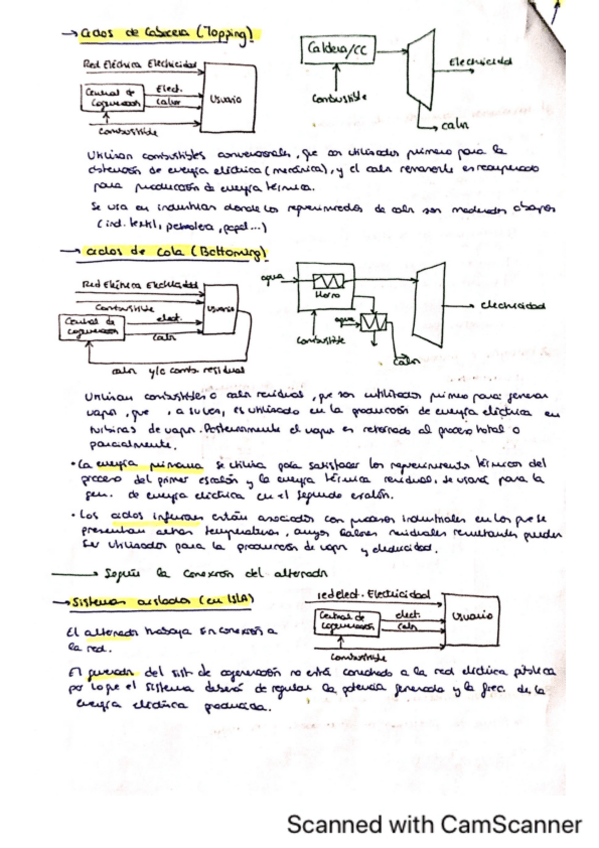 → Ciclos de Cabecera (Topping)
Red Eléctrica Electricidad
Central de
Cogeneración
Elect.
calor
Usuario
Combustible
Caldera/CC
Combustible
Electricidad
calor
Utilizan combustibles convencionales, que son utilizados primero para la
obtención de energía eléctrica (mecánica), y el calor remanente es recuperado
para producción de energía térmica.
Se usa en industrias donde los requerimientos de calor son moderados o bajos
(ind. textil, petrolera, papel...)
→ Ciclos de Cola (Bottoming)
Red Eléctrica Electricidad
Combustible
Central de
cogeneración
elect.
calor
Usuario
calor y/o comb. residual
agua
Horno
agua
Combustible
calor
electricidad
Utilizan combustibles o calor residual, que son utilizados primero para generar
vapor, que, a su vez, es utilizado en la producción de energía eléctrica en
turbinas de vapor. Posteriormente el vapor es retornado al proceso total o
parcialmente.
• La energía primaria se utiliza para satisfacer los requerimientos térmicos del
proceso del primer escalón y la energía térmica residual, se usará para la
gen. de energía eléctrica en el segundo escalón.
• Los ciclos inferiores están asociados con procesos industriales en los que se
presentan altas temperaturas, cuyos calores residuales resultantes pueden
ser utilizados para la producción de vapor y electricidad.
→ Según la conexión del alternador
→ Sistemas aislados (en ISLA)
red elect. Electricidad
Central de
cogeneración
elect.
calor
Usuario
Combustible
El alternador trabaja sin conexión a
la red.
El generador del sist. de cogeneración no está conectado a la red eléctrica pública
por lo que el sistema deberá de regular la potencia generada y la frec. de la
energía eléctrica producida.
Scanned with CamScanner